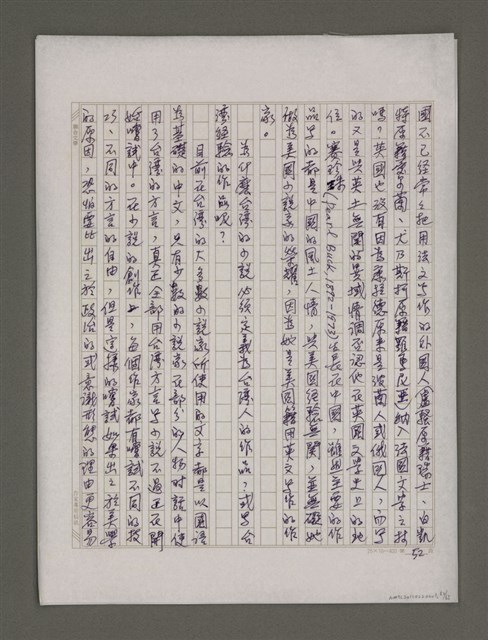 國不已經常常把用法文寫作的外國人(盧騷原籍瑞士、白凱
特原籍愛爾蘭、尤乃斯柯原籍羅馬尼亞)納入法國文學之林
嗎？英國也沒有因為康拉德原來是波蘭人或俄國人，而寫
的又是與英土無關的異域情調否認他在英國文學史上的地
位。賽珍珠(Pearl Buck, 1892-1973)生長在中國，雖然主要的作
品寫的都是中國的風土人情，與美國經驗無關，並無礙她
做為美國小說家的榮耀，因為她是美國籍用英文寫作的作
家。
為什麼台灣的小說必須定義為台灣人的作品，或寫台
灣經驗的作品呢？
目前在台灣的大多數小說家所使用的文字都是以國語
為基礎的中文，只有少數的小說家在部分的人物對話中使
用了台灣的方言，真正全部用台灣方言寫小說不過還在開
始嚐試中。在小說的創作上，每個作家都有嚐試不同的技
巧、不同的方言的自由，但是這樣的嚐試如果出之於美學
的原因，恐怕要比出之於政治的或意識形態的理由更容易
52